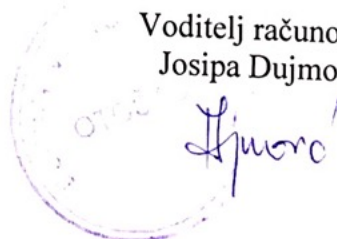 Voditelj računo
Josipa Dujmo